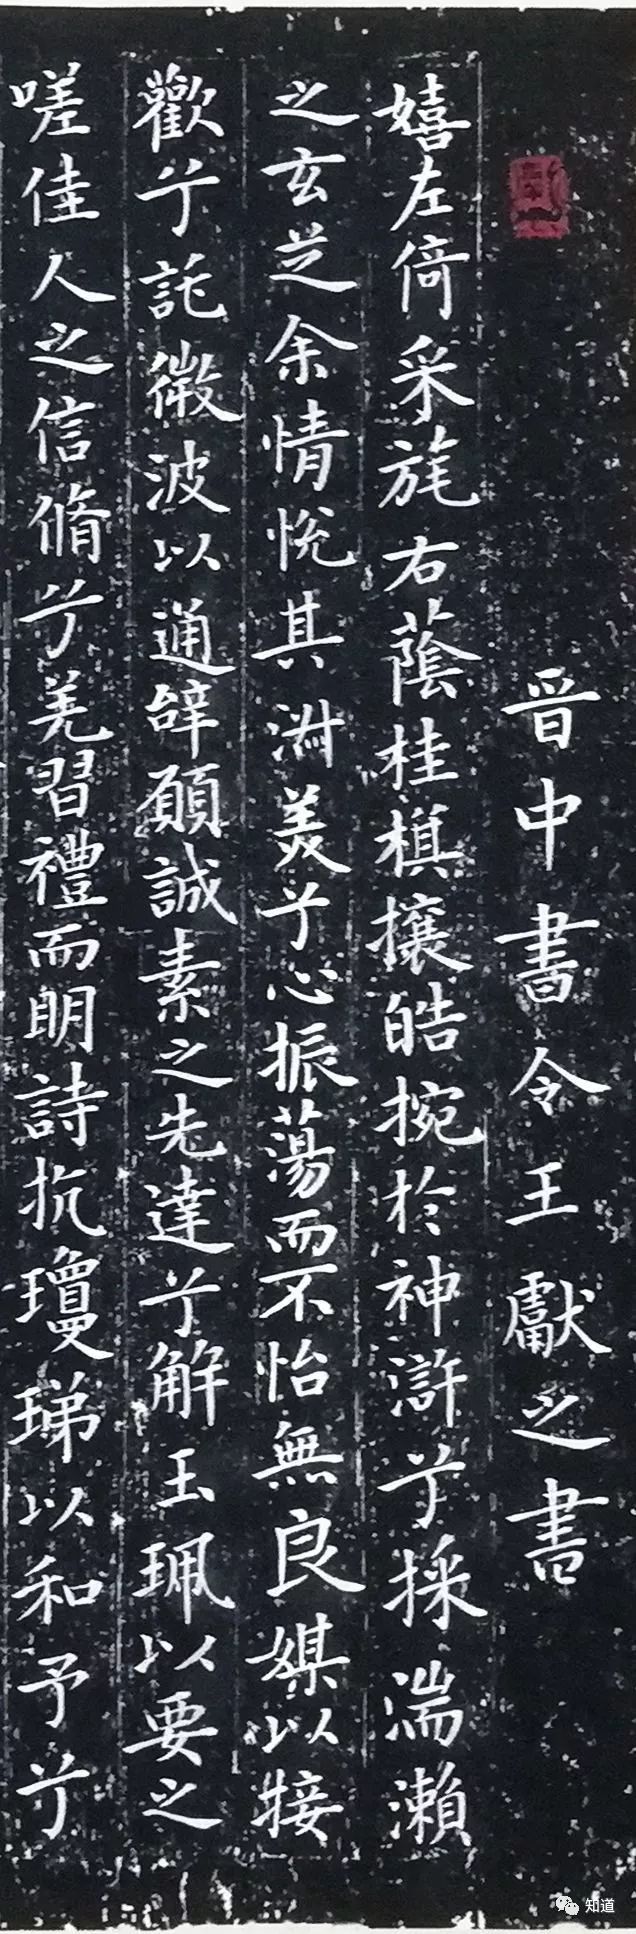 晋中書令王獻之書
嬉左倚采旄右蔭桂棋攘皓捥於神滸兮採湍瀨
之玄芝余情悅其淑美兮心振蕩而不怡無良媒以接
歡兮託微波以通辝願誠素之先達兮解玉珮以要之
嗟佳人之信脩兮羌習禮而明詩抗瓊珶以和予兮
知道